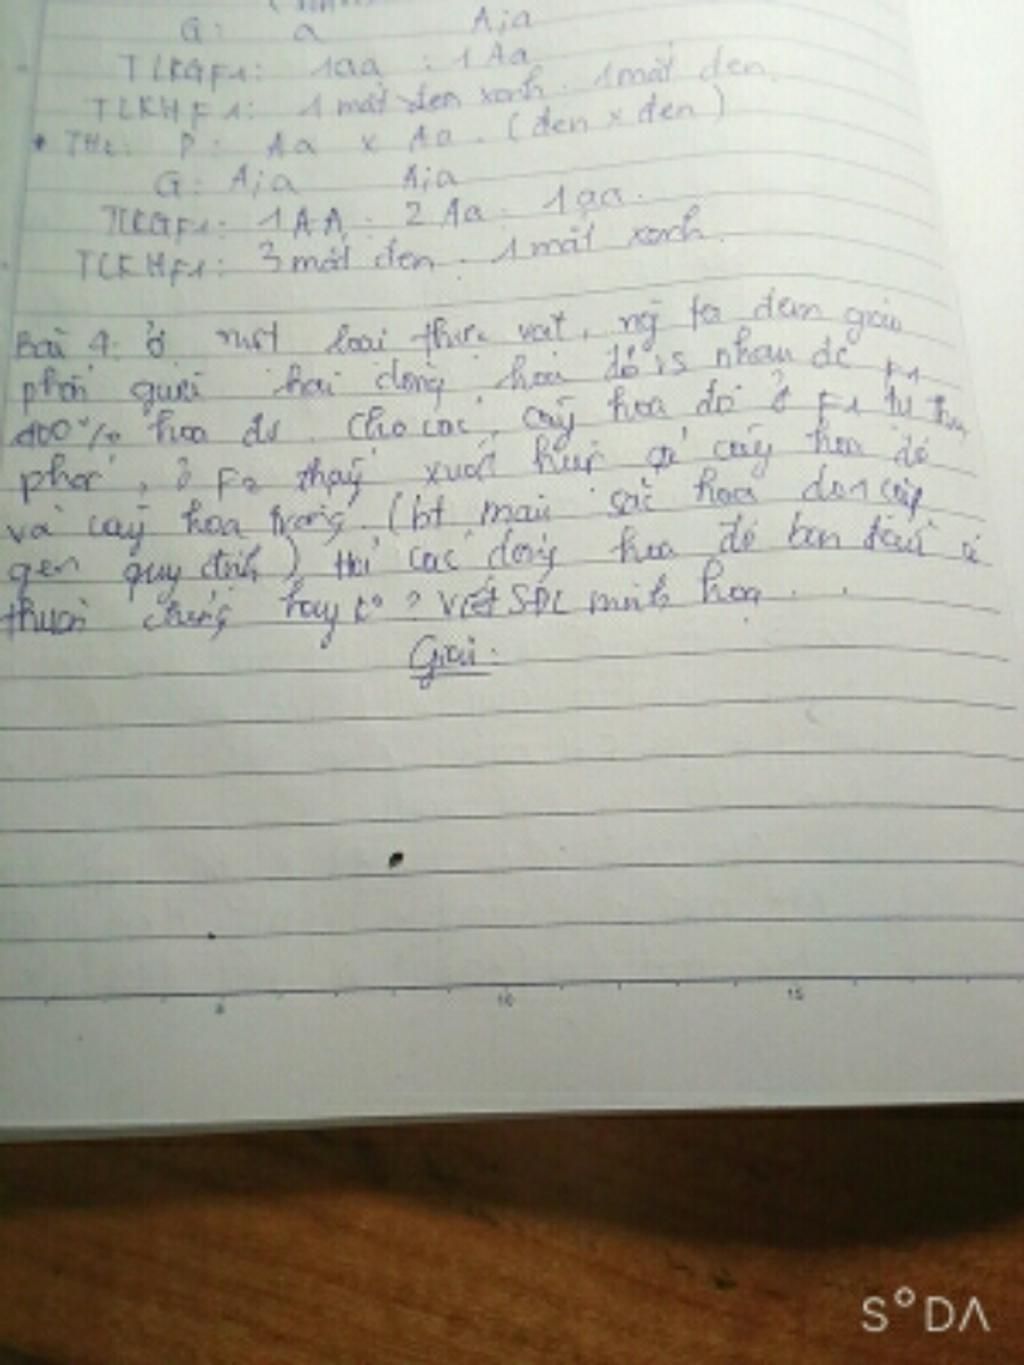 G: a A;a
TLKGF1: 1aa : 1Aa
TLKHF1: 1 mắt xanh : 1 mắt đen
* TH2: P: Aa x Aa. (đen x đen)
G: A;a A;a
TLKGF1: 1AA : 2Aa : 1aa.
TLKHF1: 3 mắt đen : 1 mắt xanh.
Bài 4: ở một loài thực vật, ng ta đem giao
phấn giữa hai dòng hoa đỏ vs nhau đc F1
100% hoa đỏ. Cho các cây hoa đỏ ở F1 tự thụ
phấn, ở F2 thấy xuất hiện cả cây hoa đỏ
và cây hoa trắng. (bt màu sắc hoa do 1 cặp
gen quy định) Hỏi các dòng hoa đỏ ban đầu có
thuần chủng hay ko? Viết SĐL minh họa.
Giải:
5 10 15
S°DA